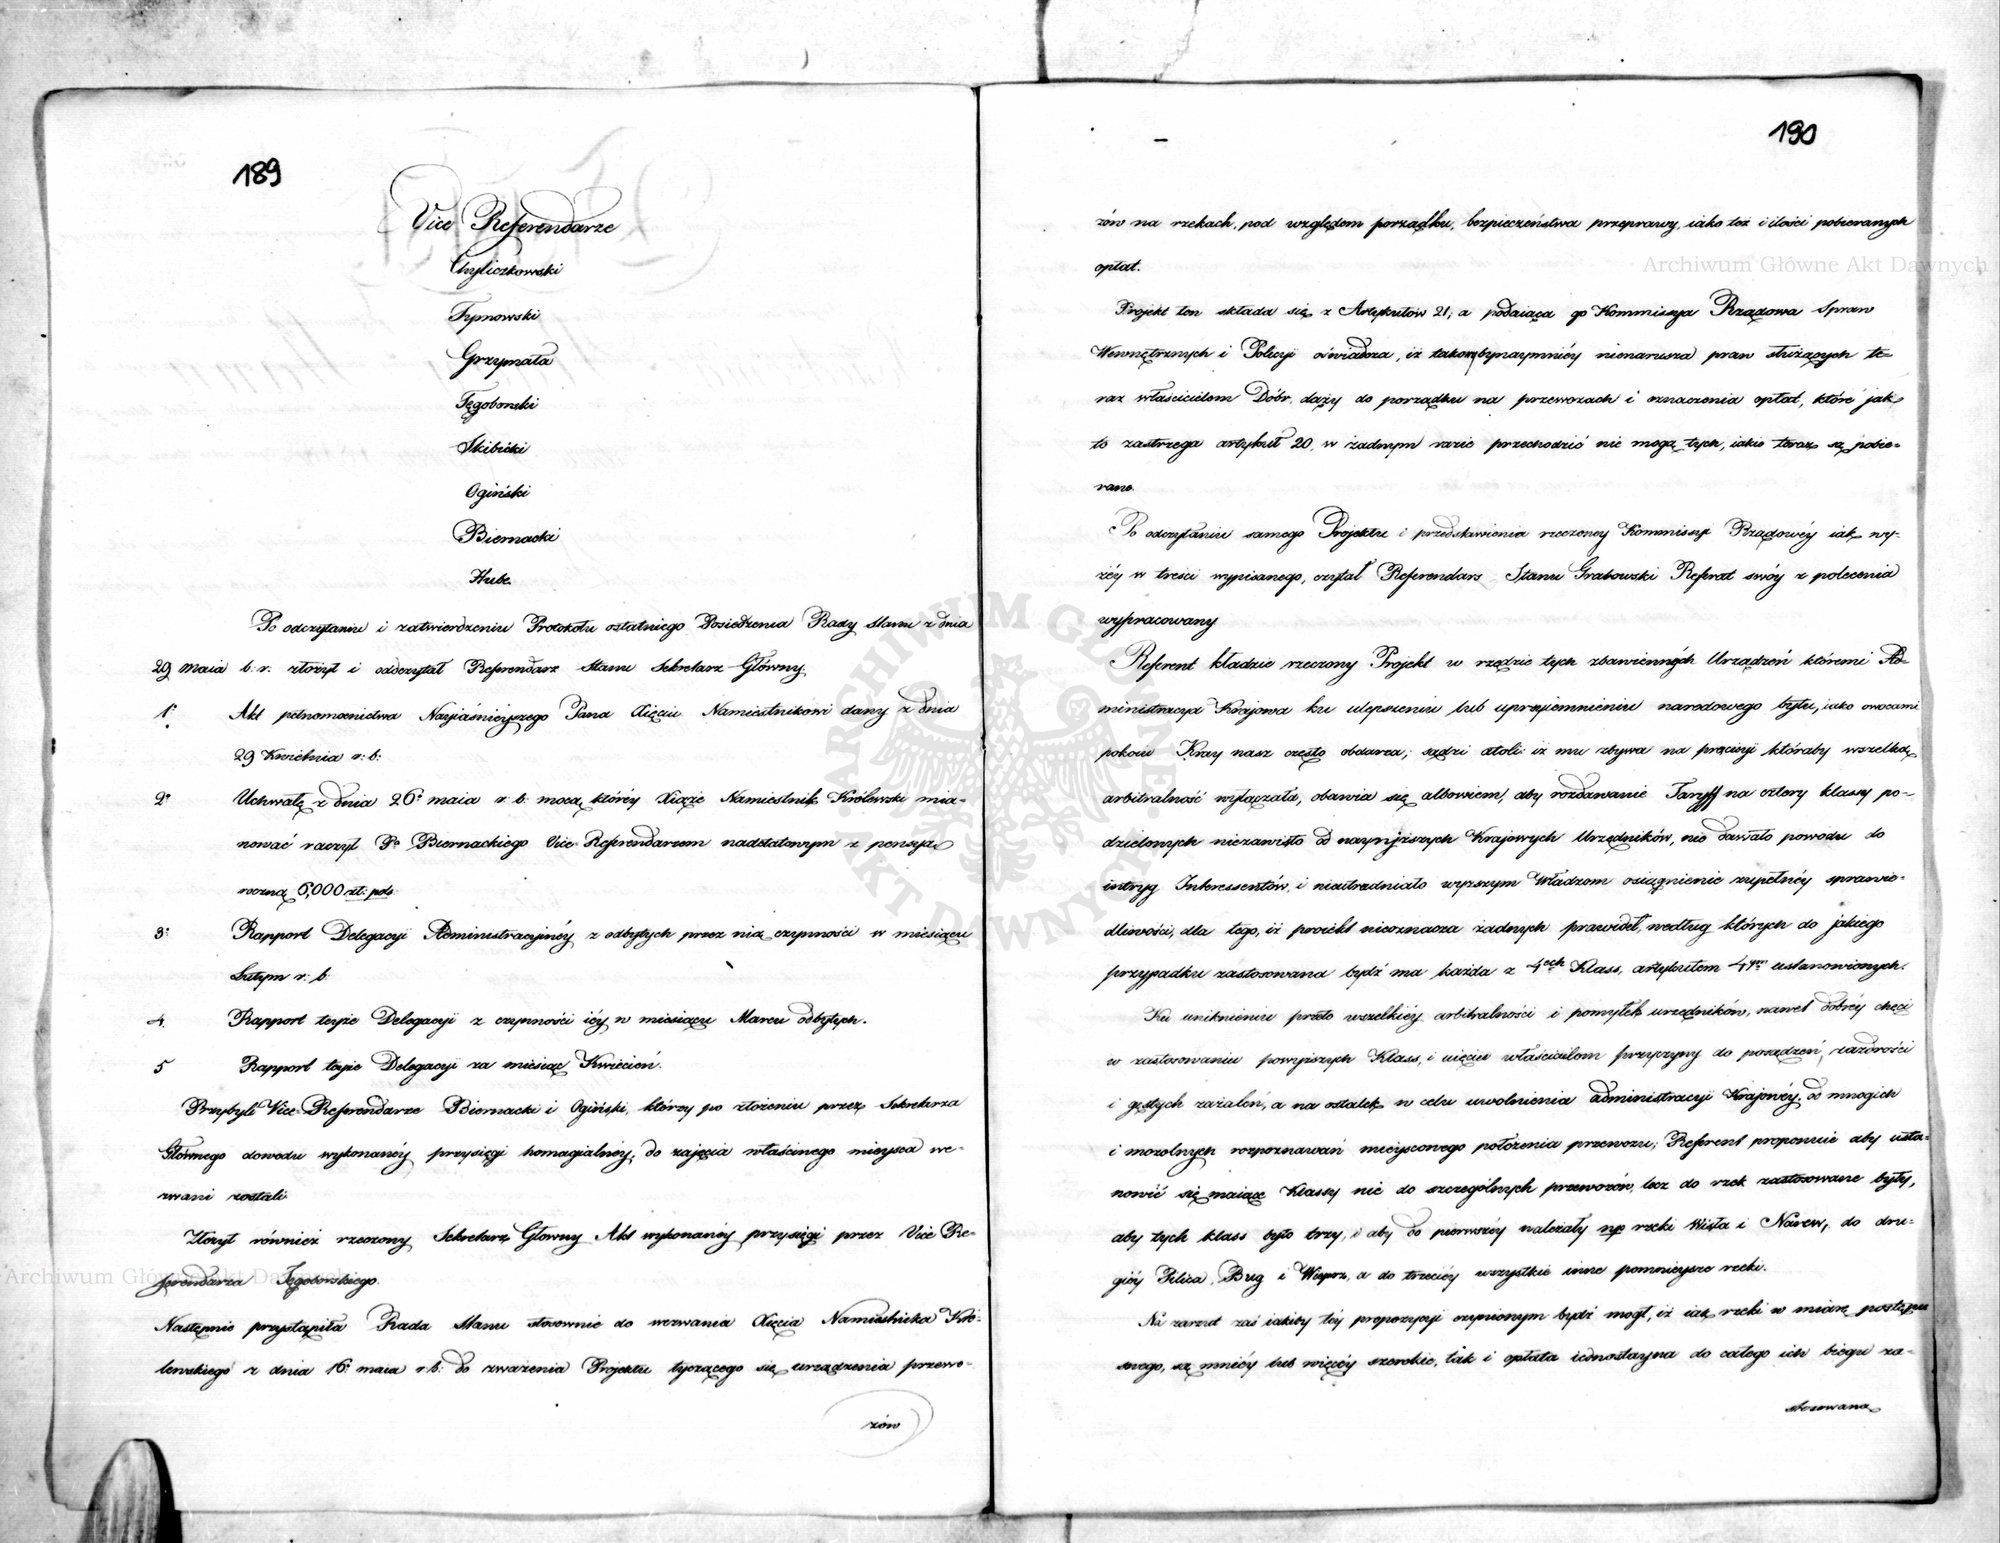 189
Vice Referendarze
Chyliczkowski
Tymowski
Grzymała
Tęgoborski
Skibicki
Ogiński
Biernacki
Hube.
Po odczytaniu i zatwierdzeniu Protokołu ostatniego Posiedzenia Rady Stanu z dnia
29 maia b. r. złożył i odczytał Referendarz Stanu Sekretarz Główny.
1° Akt pełnomocnictwa Nayiaśnieyszego Pana Xięciu Namiestnikowi dany z dnia
29 Kwietnia r: b:
2° Uchwałę z dnia 26° maia r: b: mocą któréy Xiąże Namiestnik Królewski mia=
nować raczył Pa Biernackiego Vice-Referendarzem nadetatowym z pensyą
roczną 6,000 zł: pols.
3° Rapport Delegacyi Administracyinéy z odbytych przez nią czynności w miesiącu
Lutym r: b.
4. Rapport teyże Delegacyi z czynności iéy w miesiącu Marcu odbytych.
5 Rapport teyże Delegacyi za miesiąc Kwiecień.
Przybyli Vice-Referendarze Biernacki i Ogiński, którzy po złożeniu przez Sekretarza
Głównego dowodu wykonanéy przysięgi homagialnéy, do zajęcia właściwego mieysca we=
zwani zostali.
Złożył również rzeczony Sekretarz Główny Akt wykonanéy przysięgi przez Vice Re=
ferendarza Tęgoborskiego.
Następnie przystąpiła Rada Stanu stosownie do wezwania Xięcia Namiestnika Kró=
lewskiego z dnia 16° maia r. b: do zważenia Projektu tyczącego się urządzenia przewo=
zów
190
zów na rzekach, pod względem porządku, bezpieczeństwa przeprawy, iako też i ilości pobieranych
opłat.
Projekt ten składa się z Artykułów 21, a podaiąca go Kommissya Rządowa Spraw
Wewnętrznych i Policyi oświadcza, iż takowy bynaymniéy nienarusza praw służących te=
raz właścicielom Dóbr, dąży do porządku na przewozach i oznaczenia opłat, które jak
to zastrzega artykuł 20, w żadnym razie przechodzić nie mogą tych, iakie teraz są pobie=
rane.
Po odczytaniu samego Projektu i przedstawienia rzeczoney Kommissyi Rządowéy iak wy=
żéy w treści wypisanego, czytał Referendarz Stanu Grabowski Referat swóy z polecenia
wypracowany
Referent kładzie rzeczony Projekt w rzędzie tych zbawiennych Urządzeń któremi Ad=
ministracya Krajowa ku ulepszeniu lub uprzyiemnieniu narodowego bytu, iako owocami
pokoiu Kray nasz często obdarza; sądzi atoli iż mu zbywa na precizyi któraby wszelką
arbitralność wyłączała, obawia się albowiem, aby rozdawanie Taryff na cztery klassy po=
dzielonych niezawisło od nayniższych Krajowych Urzędników, nie dawało powodu do
intryg Interessentów, i nieutrudniało wyższym Władzom osiągnienie zupełnéy sprawie=
dliwości, dla tego, iż proiekt nieoznacza żadnych prawideł, według których do jakiego
przypadku zastosowana bydź ma każda z 4ech Klass, artykułem 4ym ustanowionych.
Ku uniknieniu przeto wszelkiéy arbitralności i pomyłek urzędników, nawet dobrey chęci
w zastosowaniu powyższych Klass, i uięciu właścicielom przyczyny do posądzeń, zazdrości
i gęstych zażaleń, a na ostatek w celu uwolnienia administracyi Krajowéy od mnogich
i mozolnych rozpoznawań mieyscowego położenia przewozu; Referent proponuie aby usta=
nowić się maiące Klassy nie do szczególnych przewozów, lecz do rzek zastosowane były,
aby tych klass było trzy, i aby do pierwszéy należały np rzeki Wisła i Narew, do dru=
giéy Pilica, Bug i Wieprz, a do trzeciéy wszystkie inne pomnieysze rzeki.
Na zarzut zaś iakiby téy propozycyi czynionym bydź mógł, iż iak rzeki w miarę postępu
swego, są mniéy lub więcéy szerokie, tak i opłata iednostayna do całego ich biegu za=
stosowana
Archiwum Główne Akt Dawnych
Archiwum Główne Akt Dawnych
ARCHIWUM GŁÓWNE AKT DAWNYCH